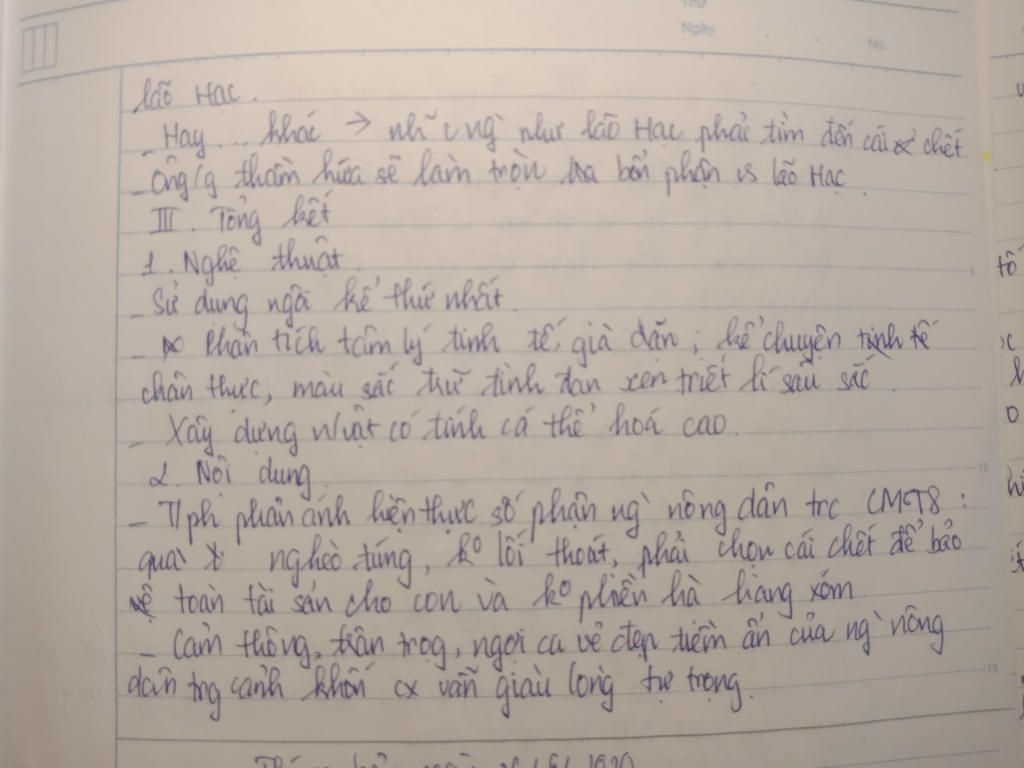 Thứ
Ngày
No.
lão Hạc.
- Hay... khác → những ng` như lão Hạc phải tìm đến cái chết
- Ông/g thầm hứa sẽ làm trọn bổn phận vs lão Hạc
III. Tổng kết
1. Nghệ thuật
- Sử dụng ngôi kể thứ nhất
- Phân tích tâm lý tinh tế, già dặn; kể chuyện tinh tế
chân thực, màu sắc trữ tình đan xen triết lí sâu sắc.
- Xây dựng n/vật có tính cá thể hoá cao.
2. Nội dung
- T/ph phản ánh hiện thực số phận ng` nông dân trc CMT8:
quá nghèo túng, ko lối thoát, phải chọn cái chết để bảo
toàn tài sản cho con và ko phiền hà hàng xóm.
- Cảm thông, trân trọg, ngợi ca vẻ đẹp tiềm ẩn của ng` nông
dân trg cảnh khốn cx vẫn giàu lòng tự trọng.
5
10
15